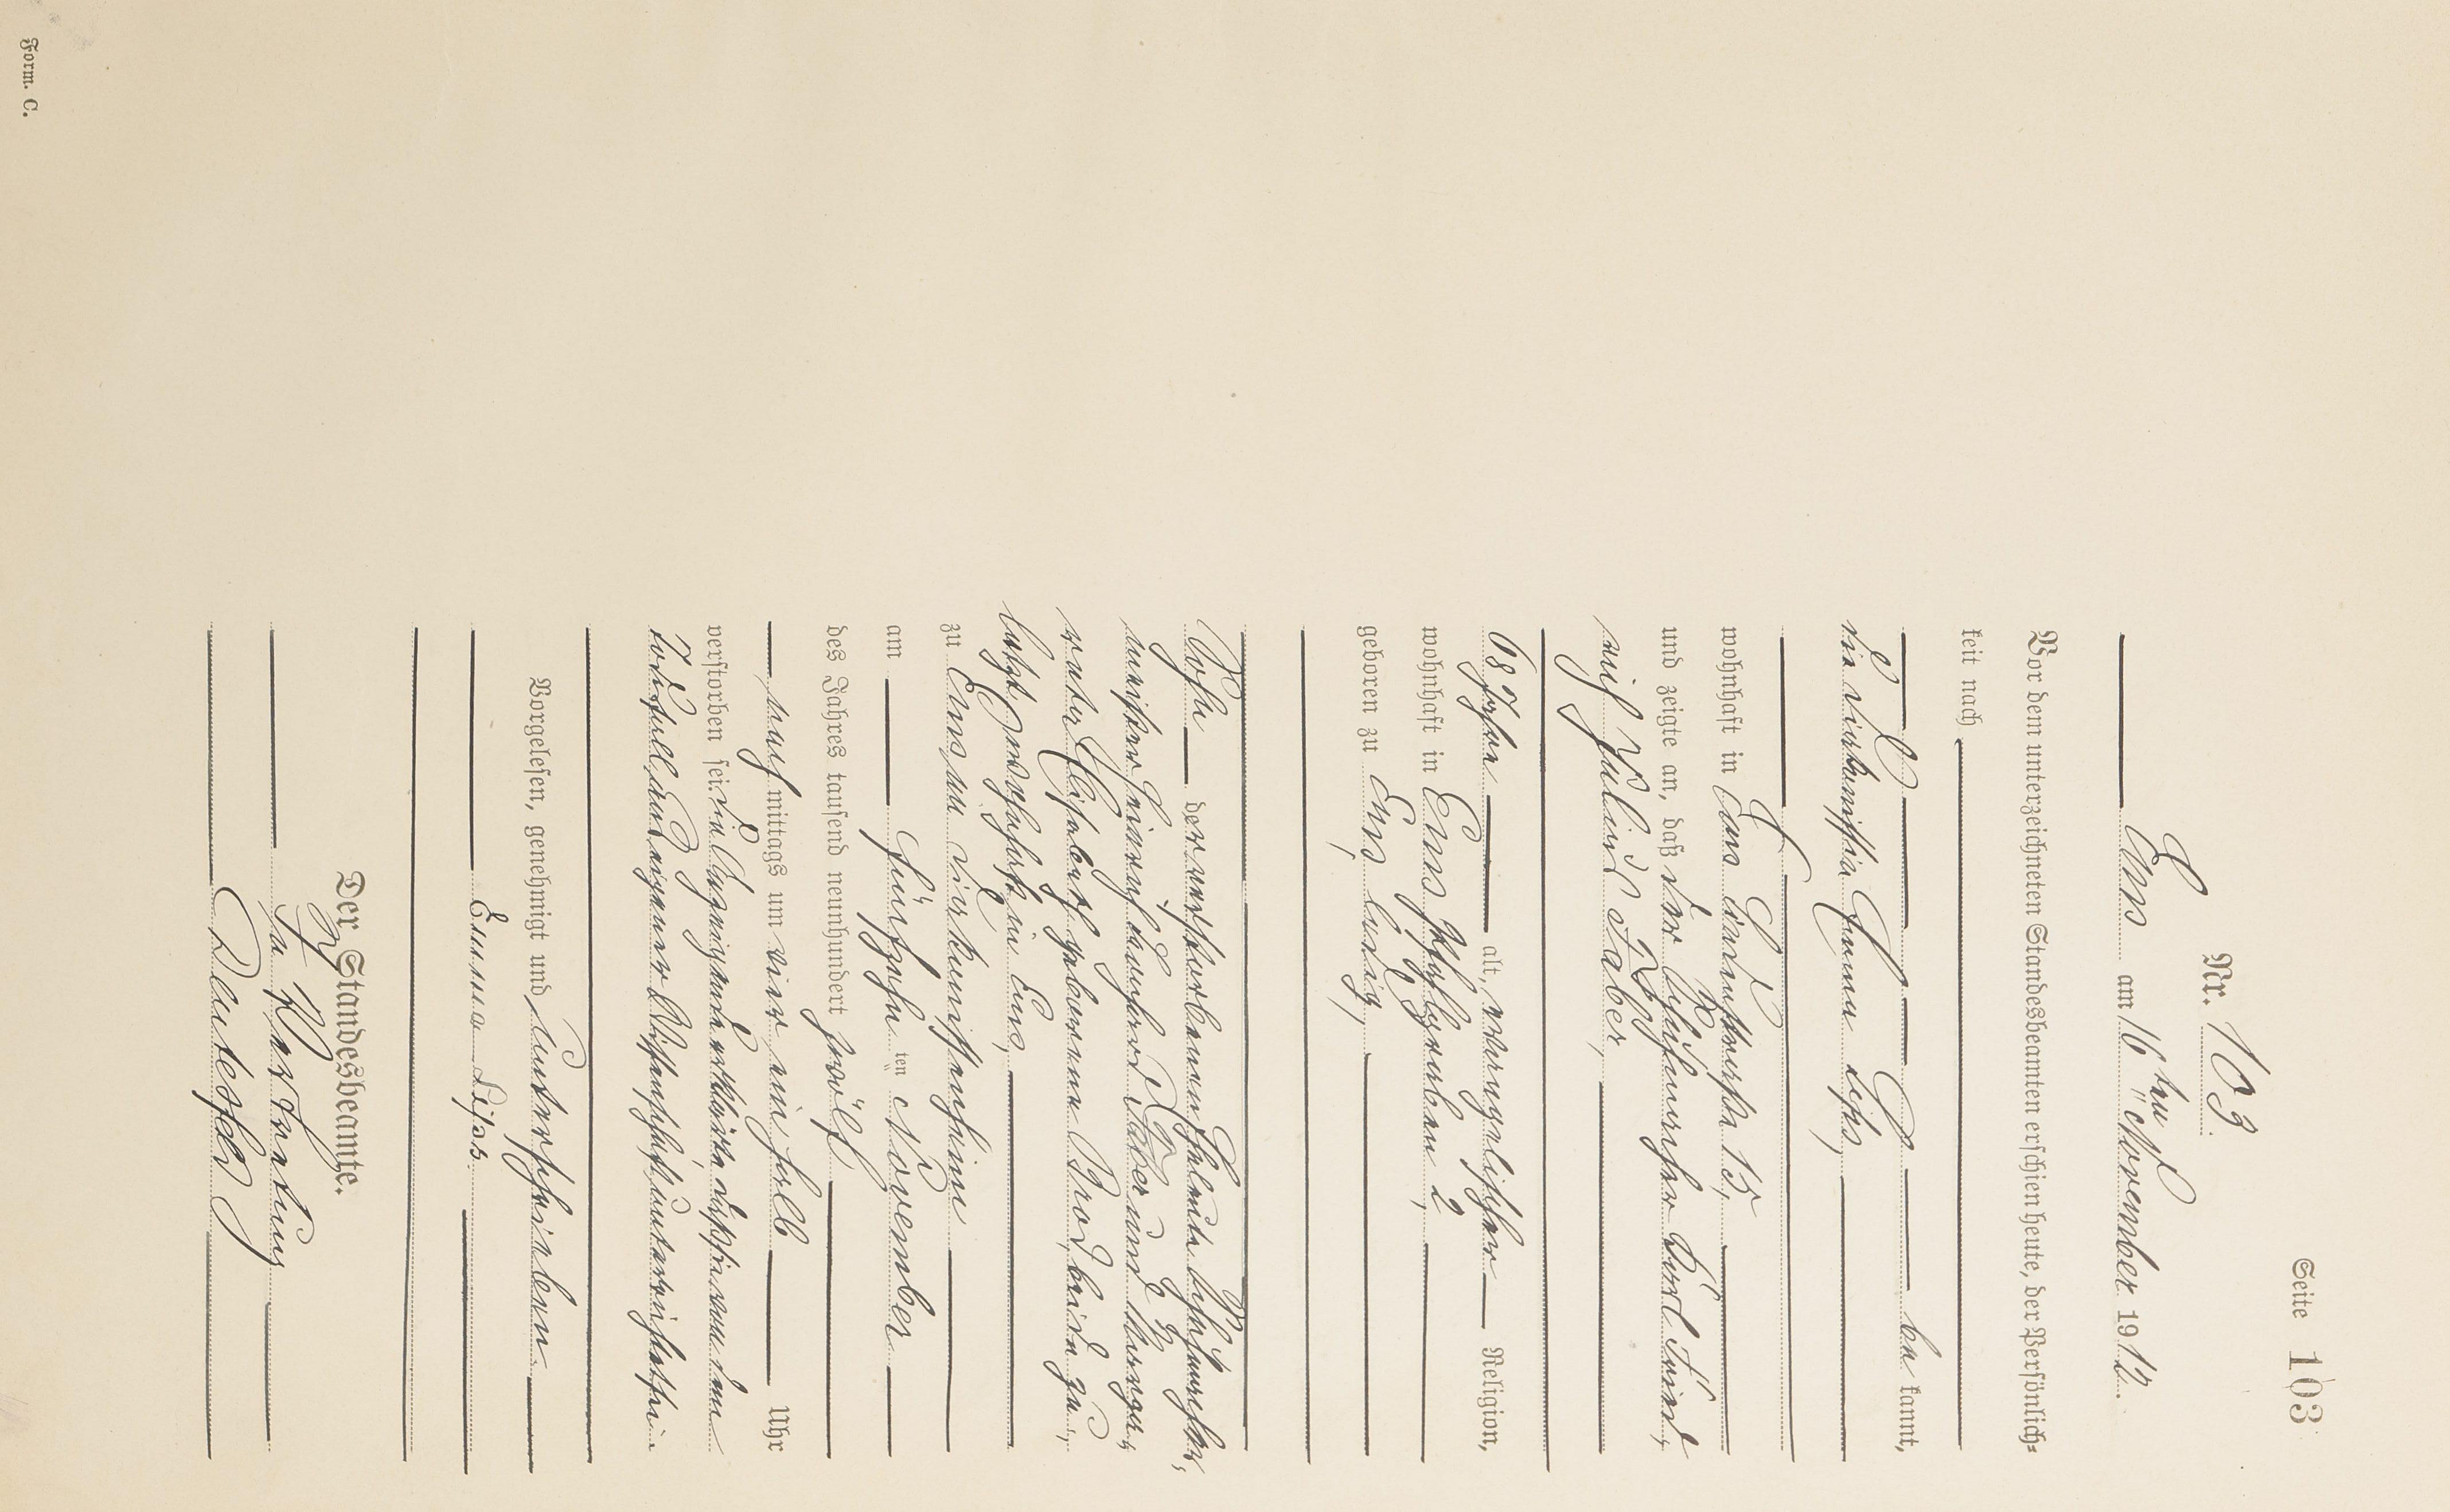 Seite 103
Nr. 103.
Ems am 16ten November 1912.
Vor dem unterzeichneten Standesbeamten erschien heute, der Persönlich-
keit nach
be kannt,
die Diakonissin Emma Lips,
wohnhaft in Ems Viktoriastraße 15,
und zeigte an, daß der Eisenbahner Karl Fried-
rich Julius Faber,
68 Jahre alt, evangelischer Religion,
wohnhaft in Ems Pfahlgraben 2,
geboren zu Ems, ledig,
Sohn der verstorbenen Eheleute
Heinrich Ludwig Faber und
Elisabeth geborenen Brod, beide zu-
letzt wohnhaft in Ems,
zu Ems im Diakonissenheim
am fünfzehn ten November
des Jahres tausend neunhundert zwölf
nach mittags um vier ein halb Uhr
verstorben sei. Die Anzeigende erklärte, daß sie von dem
Todesfall aus eigener Wissenschaft unterrichtet sei.
Vorgelesen, genehmigt und unterschrieben
Emma Lips.
Der Standesbeamte.
In Vertretung